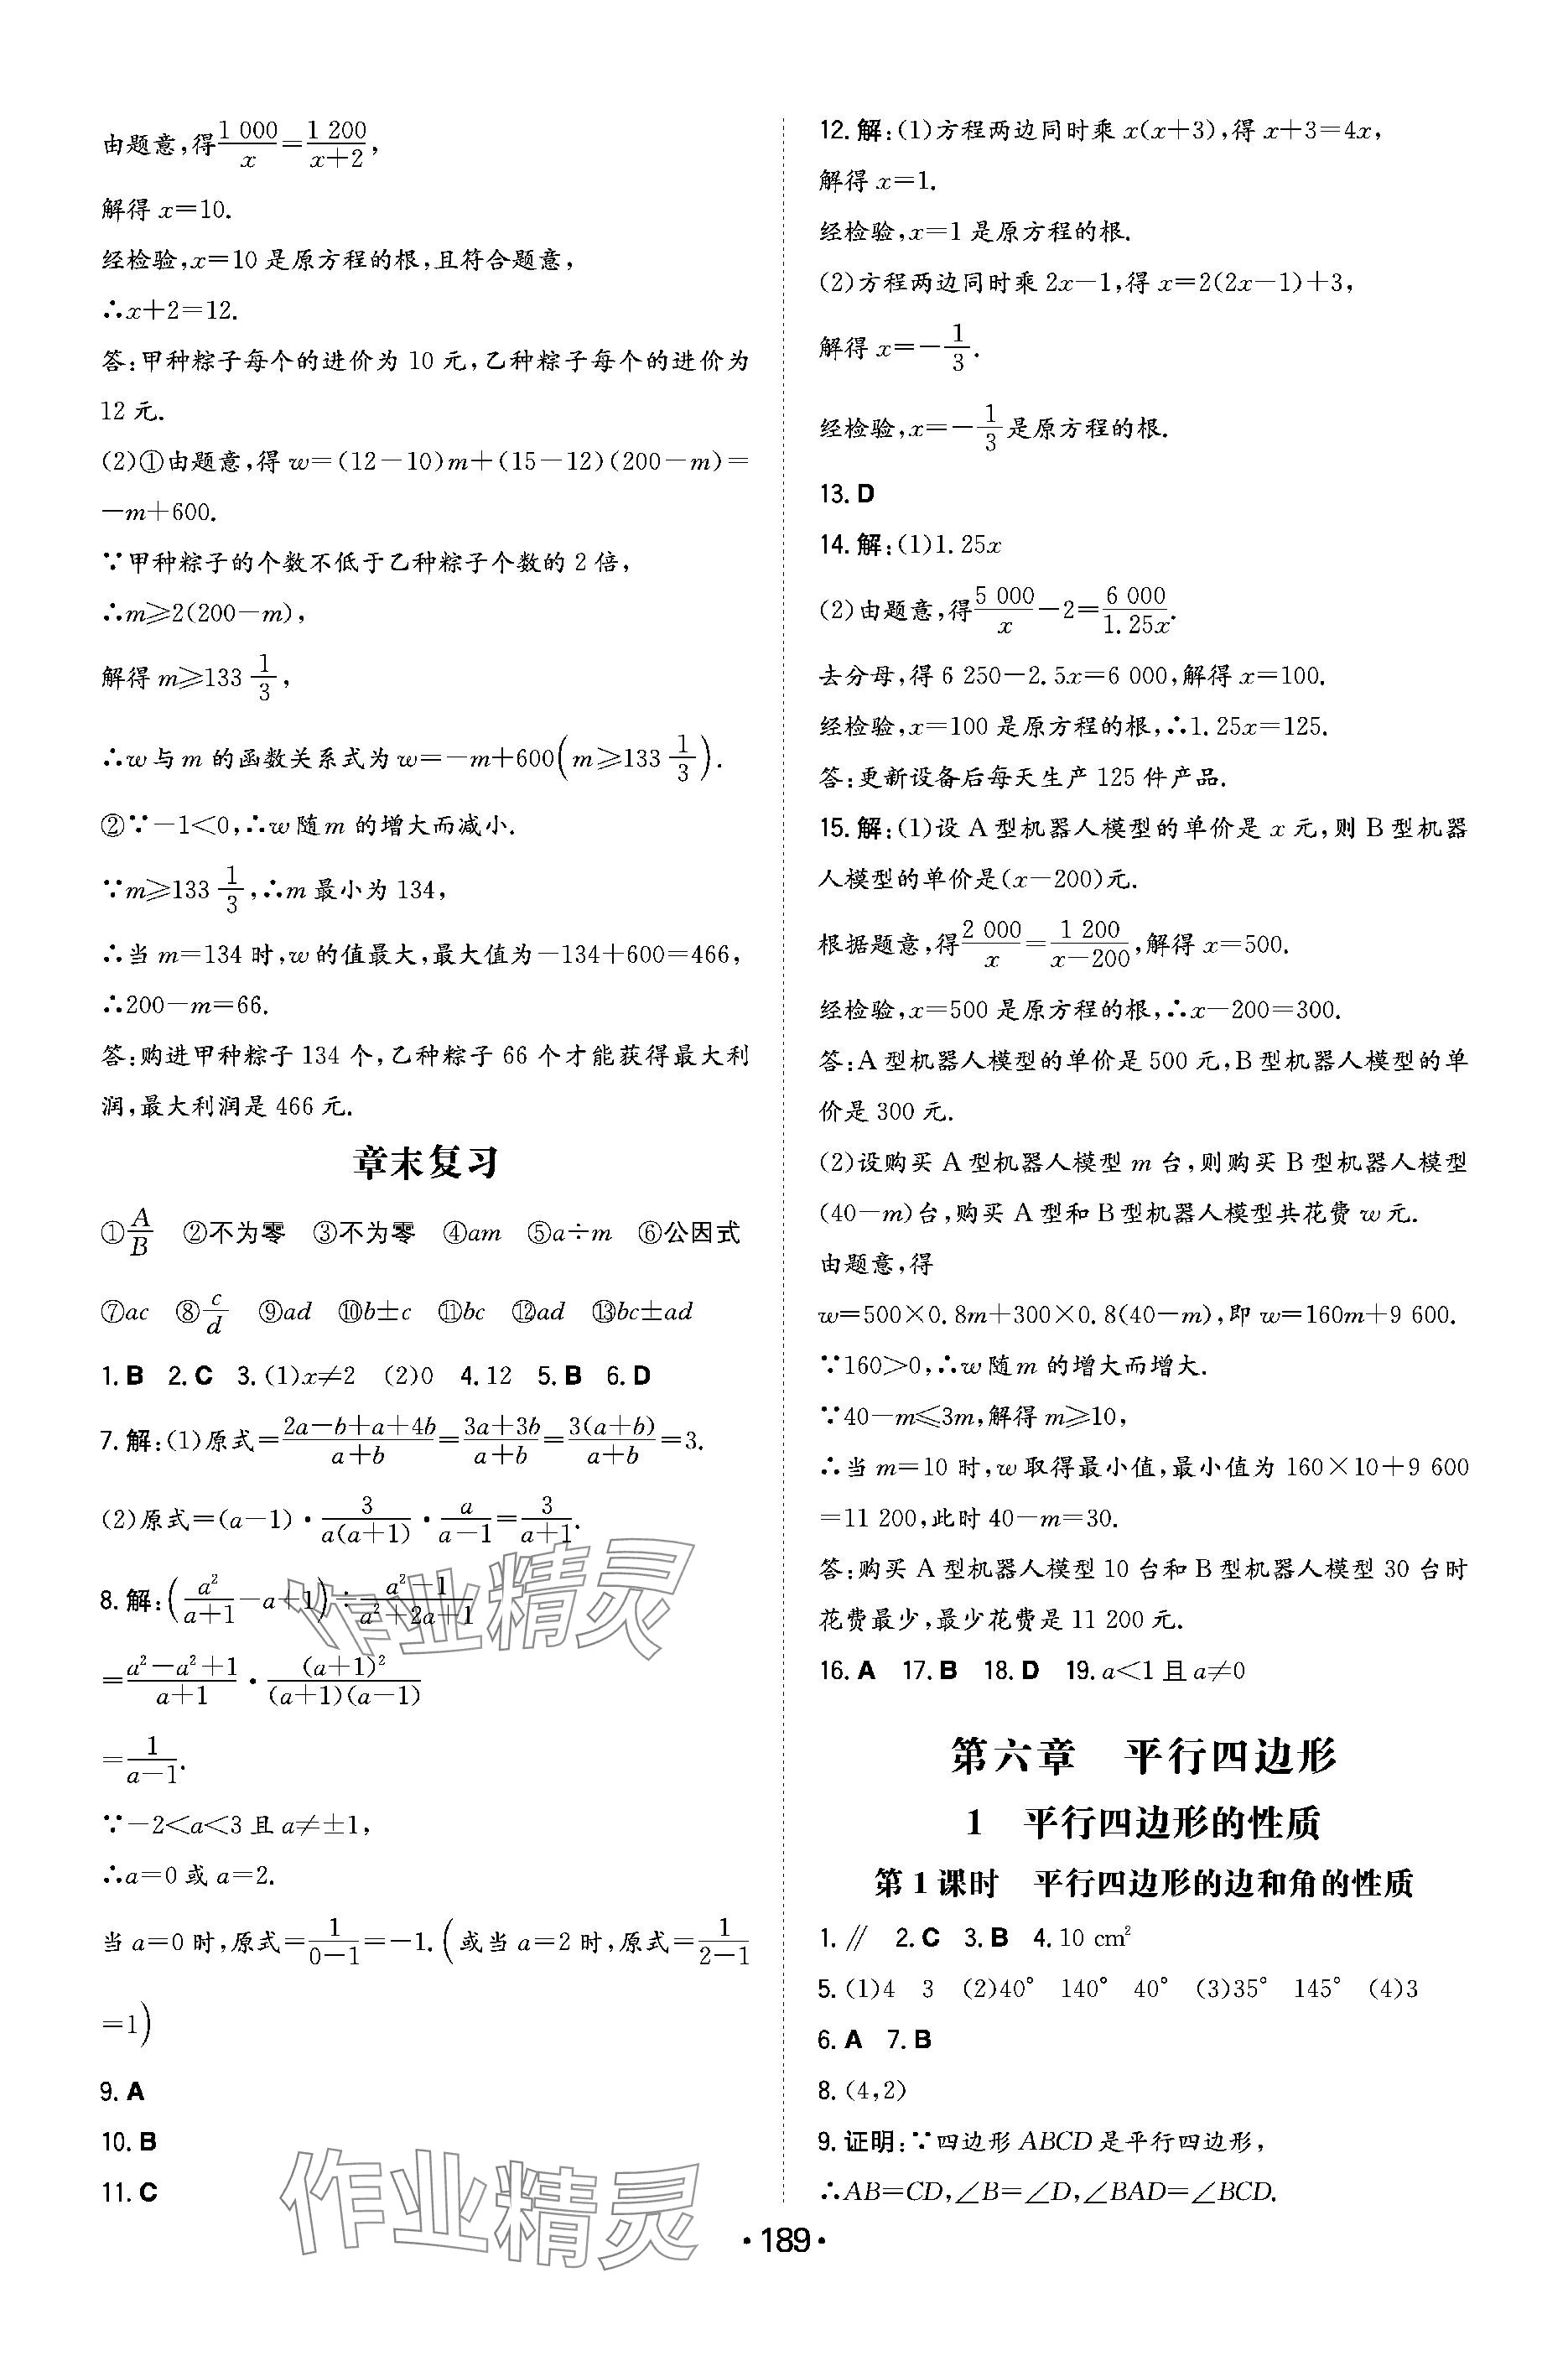 由题意,得1 000/x=1 200/(x+2),
解得 x=10.
经检验,x=10 是原方程的根,且符合题意,
∴x+2=12.
答:甲种粽子每个的进价为 10 元,乙种粽子每个的进价为
12 元.
(2)①由题意,得 w=(12-10)m+(15-12)(200-m)=
-m+600.
∵甲种粽子的个数不低于乙种粽子个数的 2 倍,
∴m≥2(200-m),
解得 m≥133 1/3,
∴w 与 m 的函数关系式为 w=-m+600(m≥133 1/3).
②∵-1<0,∴w 随 m 的增大而减小.
∵m≥133 1/3,∴m 最小为 134,
∴当 m=134 时,w 的值最大,最大值为-134+600=466,
∴200-m=66.
答:购进甲种粽子 134 个,乙种粽子 66 个才能获得最大利
润,最大利润是 466 元.
章末复习
①A/B ②不为零 ③不为零 ④am ⑤a÷m ⑥公因式
⑦ac ⑧c/d ⑨ad ⑩b±c ⑪bc ⑫ad ⑬bc±ad
1. B 2. C 3. (1)x≠2 (2)0 4. 12 5. B 6. D
7. 解:(1)原式=(2a-b+a+4b)/(a+b)=(3a+3b)/(a+b)=3(a+b)/(a+b)=3.
(2)原式=(a-1)·3/(a(a+1))·a/(a-1)=3/(a+1).
8. 解:(a²/(a+1)-a+1)÷(a²-1)/(a²+2a+1)
=(a²-a²+1)/(a+1)·(a+1)²/((a+1)(a-1))
=1/(a-1).
∵-2<a<3 且 a≠±1,
∴a=0 或 a=2.
当 a=0 时,原式=1/(0-1)=-1.(或当 a=2 时,原式=1/(2-1)
=1)
9. A
10. B
11. C
12. 解:(1)方程两边同时乘 x(x+3),得 x+3=4x,
解得 x=1.
经检验,x=1 是原方程的根.
(2)方程两边同时乘 2x-1,得 x=2(2x-1)+3,
解得 x=-1/3.
经检验,x=-1/3是原方程的根.
13. D
14. 解:(1)1.25x
(2)由题意,得5 000/x-2=6 000/1.25x.
去分母,得 6 250-2.5x=6 000,解得 x=100.
经检验,x=100 是原方程的根,∴1.25x=125.
答:更新设备后每天生产 125 件产品.
15. 解:(1)设 A 型机器人模型的单价是 x 元,则 B 型机器
人模型的单价是(x-200)元.
根据题意,得2 000/x=1 200/(x-200),解得 x=500.
经检验,x=500 是原方程的根,∴x-200=300.
答:A 型机器人模型的单价是 500 元,B 型机器人模型的单
价是 300 元.
(2)设购买 A 型机器人模型 m 台,则购买 B 型机器人模型
(40-m)台,购买 A 型和 B 型机器人模型共花费 w 元.
由题意,得
w=500×0.8m+300×0.8(40-m),即 w=160m+9 600.
∵160>0,∴w 随 m 的增大而增大.
∵40-m≤3m,解得 m≥10,
∴当 m=10 时,w 取得最小值,最小值为 160×10+9 600
=11 200,此时 40-m=30.
答:购买 A 型机器人模型 10 台和 B 型机器人模型 30 台时
花费最少,最少花费是 11 200 元.
16. A 17. B 18. D 19. a<1 且 a≠0
第六章 平行四边形
1 平行四边形的性质
第 1 课时 平行四边形的边和角的性质
1. // 2. C 3. B 4. 10 cm²
5. (1)4 3 (2)40° 140° 40° (3)35° 145° (4)3
6. A 7. B
8. (4,2)
9. 证明:∵四边形 ABCD 是平行四边形,
∴AB=CD,∠B=∠D,∠BAD=∠BCD.
作业精灵
作业精灵
·189·